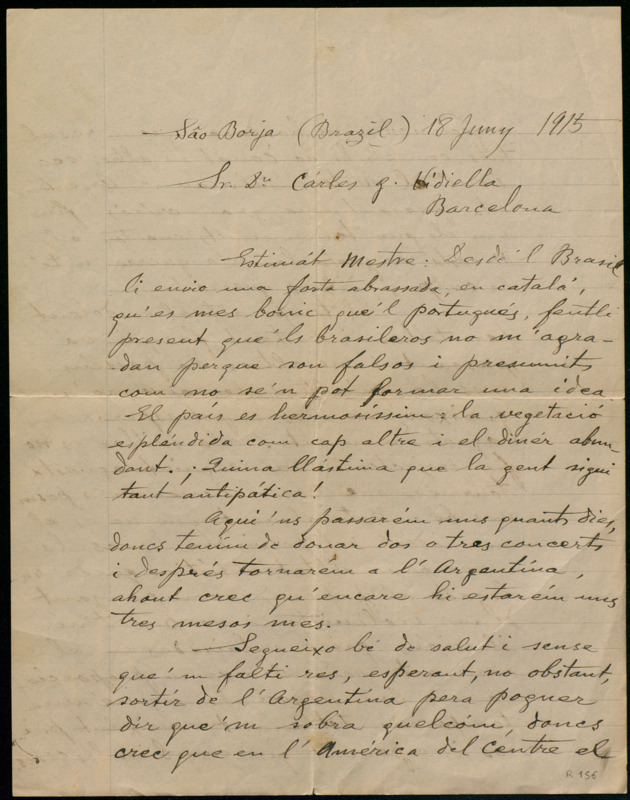 São Borja (Brazil) 18 Juny 1915
Sr. Dn Cárles g. Vidiella
Barcelona
Estimát Mestre: Desde'l Brasil
li envio una forta abrassada, en catalá,
qu'es mes bonic que'l portugués, fentli
present que'ls brasileros no m'agra-
dan perque son falsos i presumits
com no se'n pot formar una idea
El país es hermosíssim: la vegetació
espléndida com cap altre i el dinér abun-
dant. ¡Quina llástima que la gent sigui
tant antipática!
Aqui'ns passarém uns quants dies,
doncs tením de donar dos o tres concerts
i després tornarém a l'Argentína,
ahont crec qu'encare hi estarém uns
tres mesos mes.
Segueixo bé de salut i sense
que'm falti res, esperant, no obstant,
sortír de l'Argentína pera poguer
dir que'm sobra quelcóm, doncs
crec que en l'América del Céntre el
R 156